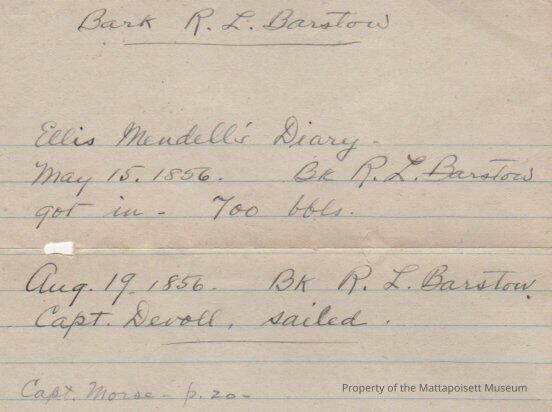 Bark R. L. Barstow
Ellis Mendell's Diary -
May 15. 1856. Bk R. L. Barstow
got in - 700 bbls.
Aug. 19. 1856. Bk R. L. Barstow
Capt. Devoll, sailed.
Capt. Morse - p. 20 -
Property of the Mattapoisett Museum